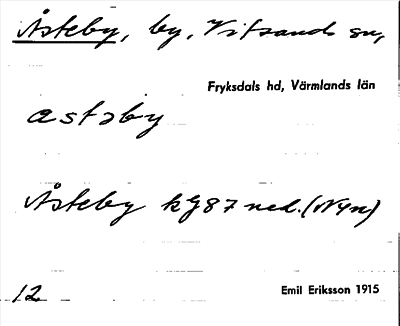 Åsteby, by, Vitsands sn,
Fryksdals hd, Värmlands län
astəby
Åsteby kg 87 ned. (Nyn)
12
Emil Eriksson 1915